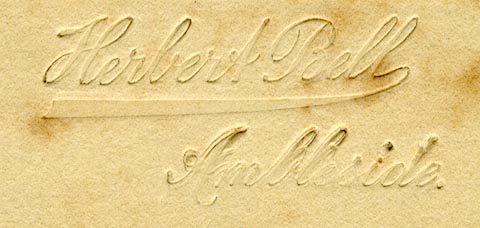 Herbert Bell
Ambleside.